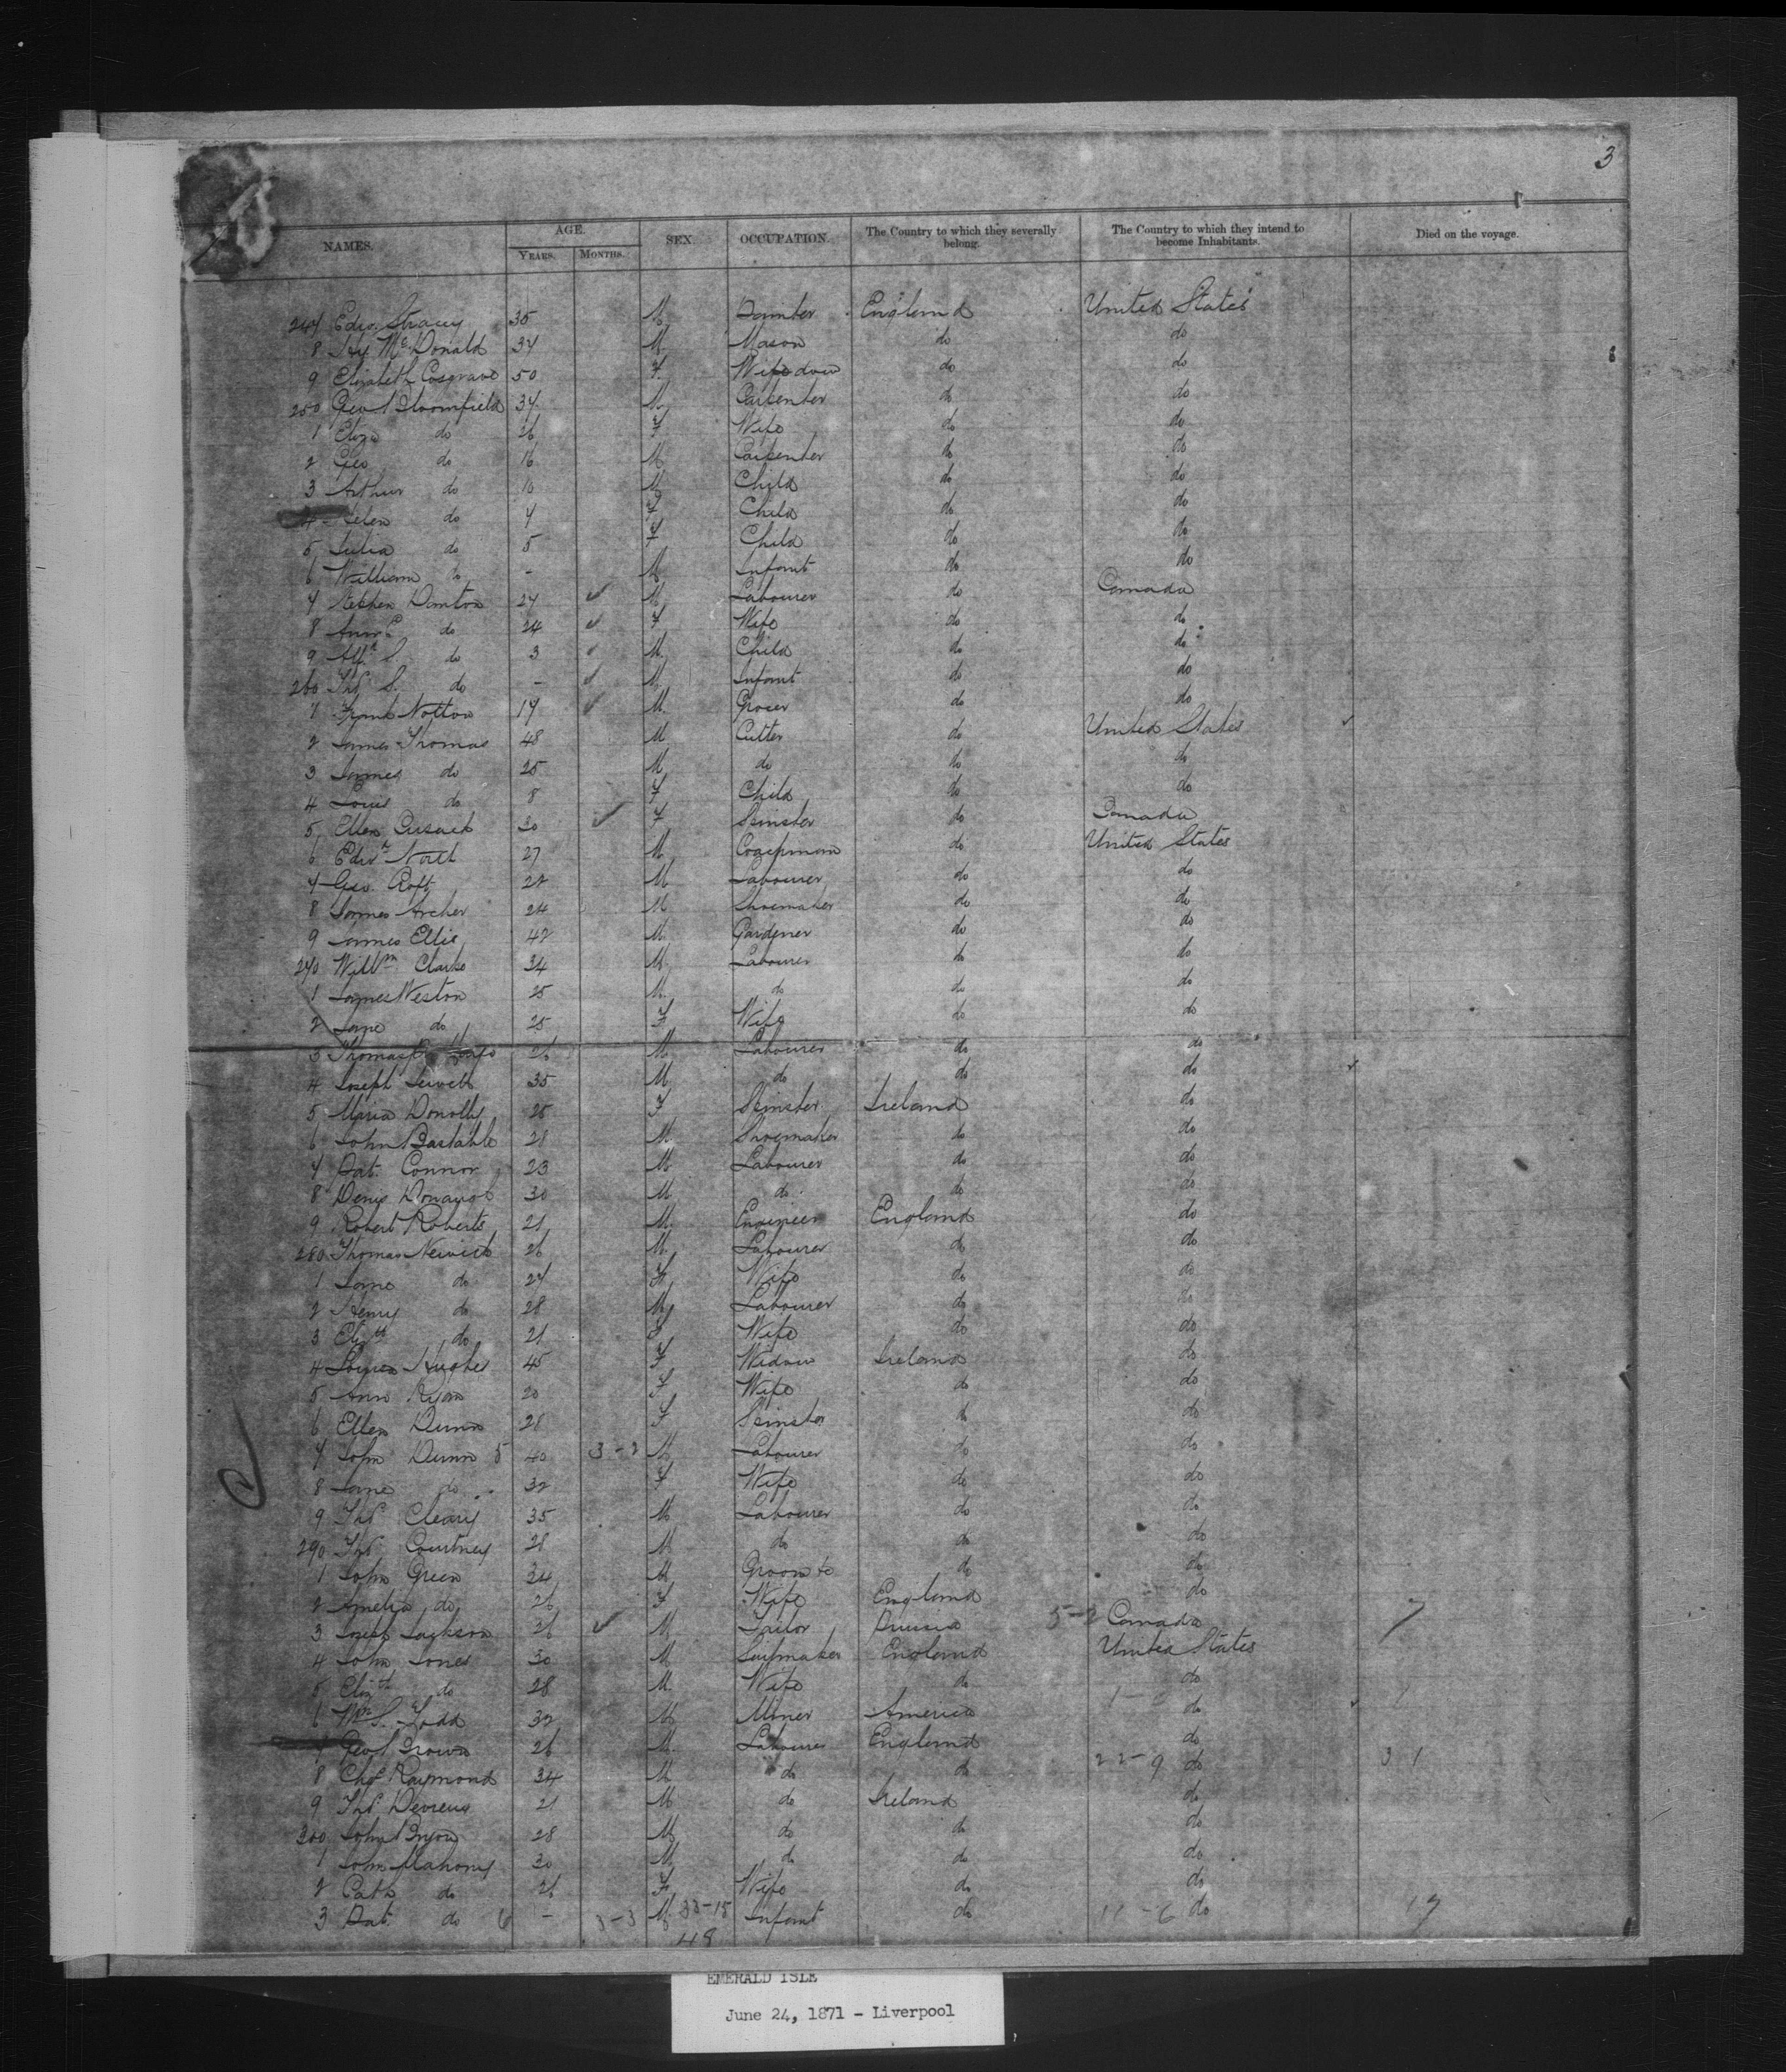 3
NAMES. AGE. SEX. OCCUPATION. The Country to which they severally belong. The Country to which they intend to become Inhabitants. Died on the voyage.
YEARS. MONTHS.
247 Edw. Stracey 35 M Painter England United States
8 Hy McDonald 37 M Mason do do
9 Elizabeth Cosgrave 50 F Widow do do
250 Geo Bloomfield 37 M Carpenter do do
1 Eliza do 26 F Wife do do
2 Geo do 16 M Carpenter do do
3 Arthur do 10 M Child do do
4 Helen do 7 F Child do do
5 Julia do 5 F Child do do
6 William do - M Infant do do
7 Stephen Danton 27 M Labourer do Canada
8 Ann do 24 F Wife do do
9 Alfd S. do 3 M Child do do
260 Thos S. do - M Infant do do
1 Frank Notton 19 M Grocer do do
2 James Thomas 48 M Cutter do United States
3 James do 25 M do do do
4 Louis do 8 F Child do do
5 Ellen Cusack 30 F Spinster do Canada
6 Edwd North 27 M do United States
7 Geo. Roft 22 M Labourer do do
8 James Archer 24 M Shoemaker do do
9 James Ellis 42 M Gardener do do
270 Willm Clarke 34 M Labourer do do
1 James Weston 25 M do do do
2 Jane do 25 F Wife do do
3 Thomas 26 M Labourer do do
4 Joseph 35 M do do do
5 Maria Donolly 25 F Spinster Ireland do
6 John Bastable 21 M Shoemaker do do
7 Pat. Connor 23 M Labourer do do
8 Denis 30 M do do do
9 Robert Roberts 21 M Engineer England do
280 Thomas 26 M Labourer do do
1 Jane do 27 F Wife do do
2 Henry do 28 M Labourer do do
3 Elizth do 21 F Wife do do
4 Hughes 45 F Widow Ireland do
5 Ann Ryan 20 F Wife do do
6 Ellen Dunn 21 F Spinster do do
7 John Dunn 5 40 3-2 M Labourer do do
8 Jane do 32 F Wife do do
9 Thos Cleary 35 M Labourer do do
290 Thos Courtney 21 M do do do
1 John Green 34 M Groom do do
2 Amelia do 26 F Wife England do
3 Joseph Jackson 26 M Tailor Prussia 5-2 Canada 7
4 John Jones 30 M England United States
5 Elizth do 28 M Wife do do
6 Wm S. Todd 32 M Miner America do
7 Geo Brown 26 M Labourer England do
8 Chas Raymond 34 M do do 22-9 do 31
9 Thos Devreux 21 M do Ireland do
300 John Bryon 28 M do do do
1 John Mahony 30 M do do do
2 Cath do 26 F Wife do do
3 Pat. do 6 - 3-3 M 33-15 Infant do 11-6 do 17
48
EMERALD ISLE
June 24, 1871 - Liverpool